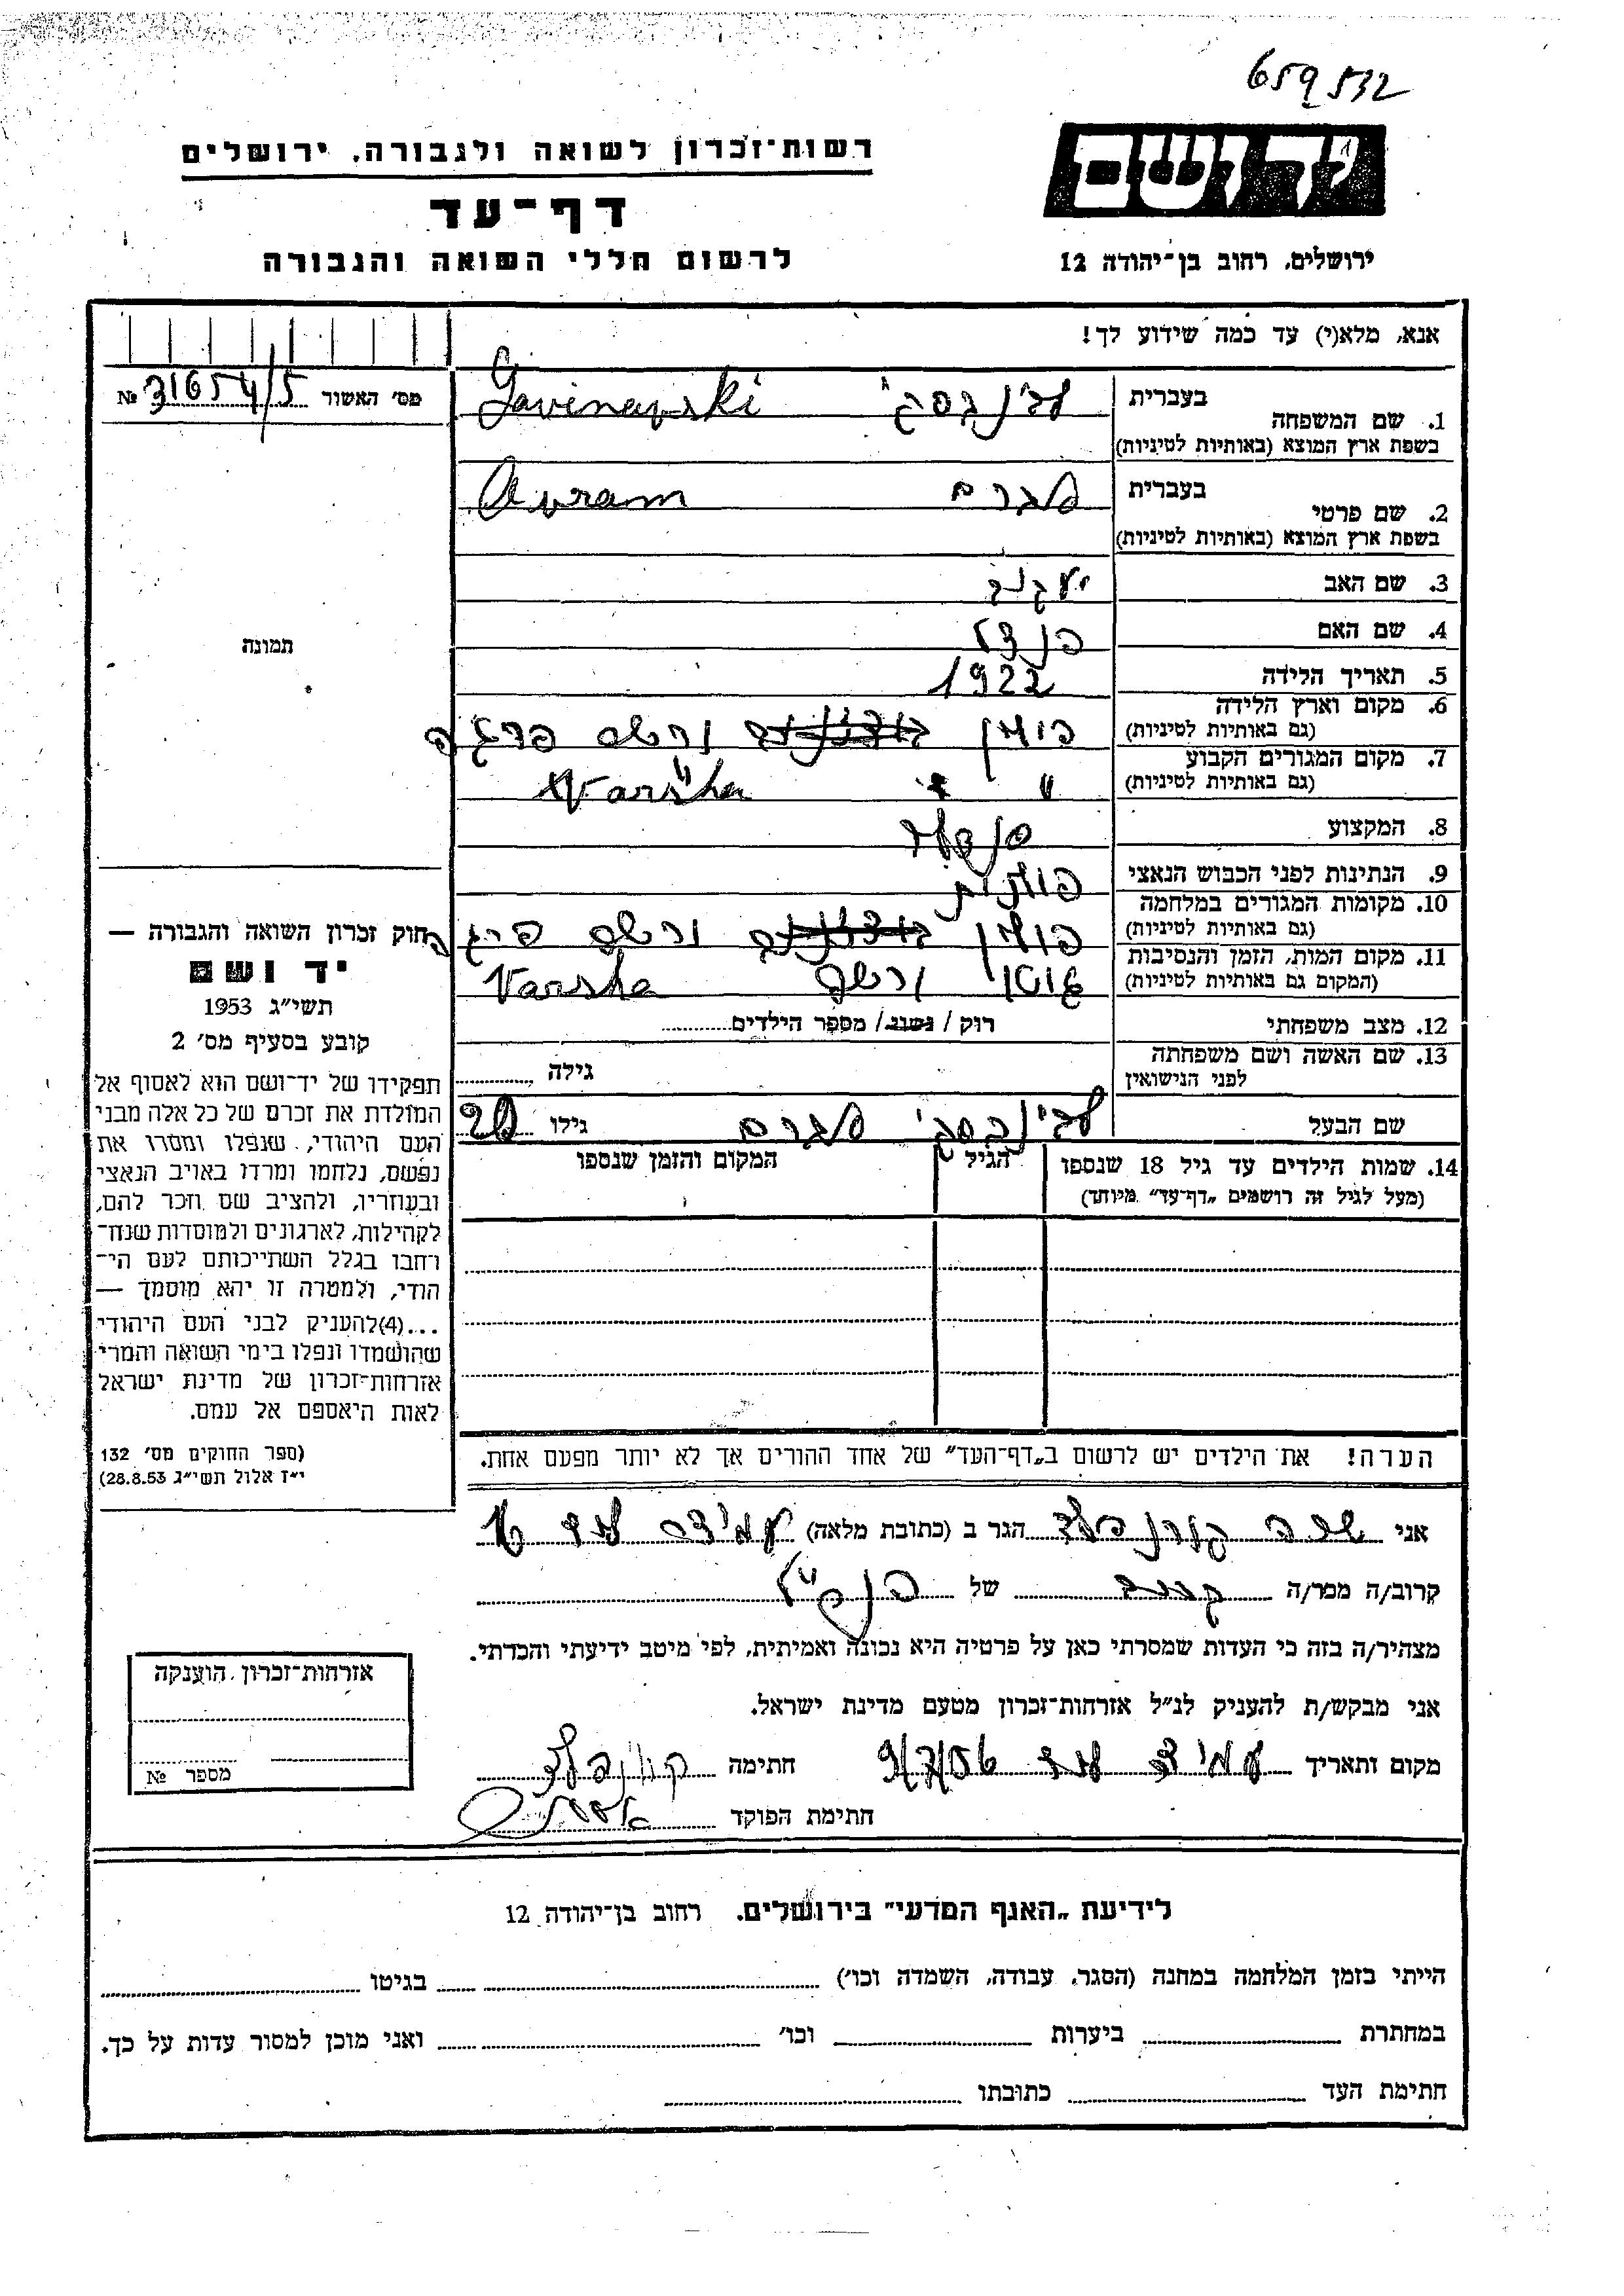 659532
יד ושם
רשות־זכרון לשואה ולגבורה, ירושלים
דף־עד
לרשום חללי השואה והגבורה
ירושלים, רחוב בן־יהודה 12
אנא, מלא(י) עד כמה שידוע לך!
מס׳ האשור № 31654/5
תמונה
1. שם המשפחה בעברית
בשפת ארץ המוצא (באותיות לטיניות)
2. שם פרטי בעברית אברם Avram
בשפת ארץ המוצא (באותיות לטיניות)
3. שם האב יעקב
4. שם האם
5. תאריך הלידה 1922
6. מקום וארץ הלידה פולין ורשה פרגה
(גם באותיות לטיניות)
7. מקום המגורים הקבוע " " Warsha
(גם באותיות לטיניות)
8. המקצוע
9. הנתינות לפני הכבוש הנאצי פולנית
10. מקומות המגורים במלחמה פולין ורשה פרגה
(גם באותיות לטיניות)
11. מקום המות, הזמן והנסיבות גיטו ורשה Varsha
(המקום גם באותיות לטיניות)
12. מצב משפחתי רוק / נשוי / מספר הילדים
13. שם האשה ושם משפחתה גילה
לפני הנישואין
שם הבעל אברם גילו
14. שמות הילדים עד גיל 18 שנספו הגיל המקום והזמן שנספו
(מעל לגיל זה רושמים „דף־עד״ מיוחד)
הערה! את הילדים יש לרשום ב„דף־העד״ של אחד ההורים אך לא יותר מפעם אחת.
חוק זכרון השואה והגבורה —
יד ושם
תשי״ג 1953
קובע בסעיף מס׳ 2
תפקידו של יד־ושם הוא לאסוף אל
המולדת את זכרם של כל אלה מבני
העם היהודי, שנפלו ומסרו את
נפשם, נלחמו ומרדו באויב הנאצי
ובעוזריו, ולהציב שם וזכר להם,
לקהילות, לארגונים ולמוסדות שנח־
רחבו בגלל השתייכותם לעם הי־
הודי, ולמטרה זו יהא מוסמך —
...(4)להעניק לבני העם היהודי
שהושמדו ונפלו בימי השואה והמרי
אזרחות־זכרון של מדינת ישראל
לאות היאספם אל עמם.
(ספר החוקים מס׳ 132
י״ז אלול תשי״ג 28.8.53)
אני שרה קורנבלד הגר ב (כתובת מלאה)
קרוב/ה מכר/ה קרובה של
מצהיר/ה בזה כי העדות שמסרתי כאן על פרטיה היא נכונה ואמיתית, לפי מיטב ידיעתי והכרתי.
אני מבקש/ת להעניק לנ״ל אזרחות־זכרון מטעם מדינת ישראל.
מקום ותאריך 9/7/56 חתימה
חתימת הפוקד
אזרחות־זכרון הוענקה
מספר №
לידיעת „האגף המדעי״ בירושלים. רחוב בן־יהודה 12
הייתי בזמן המלחמה במחנה (הסגר, עבודה, השמדה וכו׳) בגיטו
במחתרת ביערות וכו׳ ואני מוכן למסור עדות על כך.
חתימת העד כתובתו